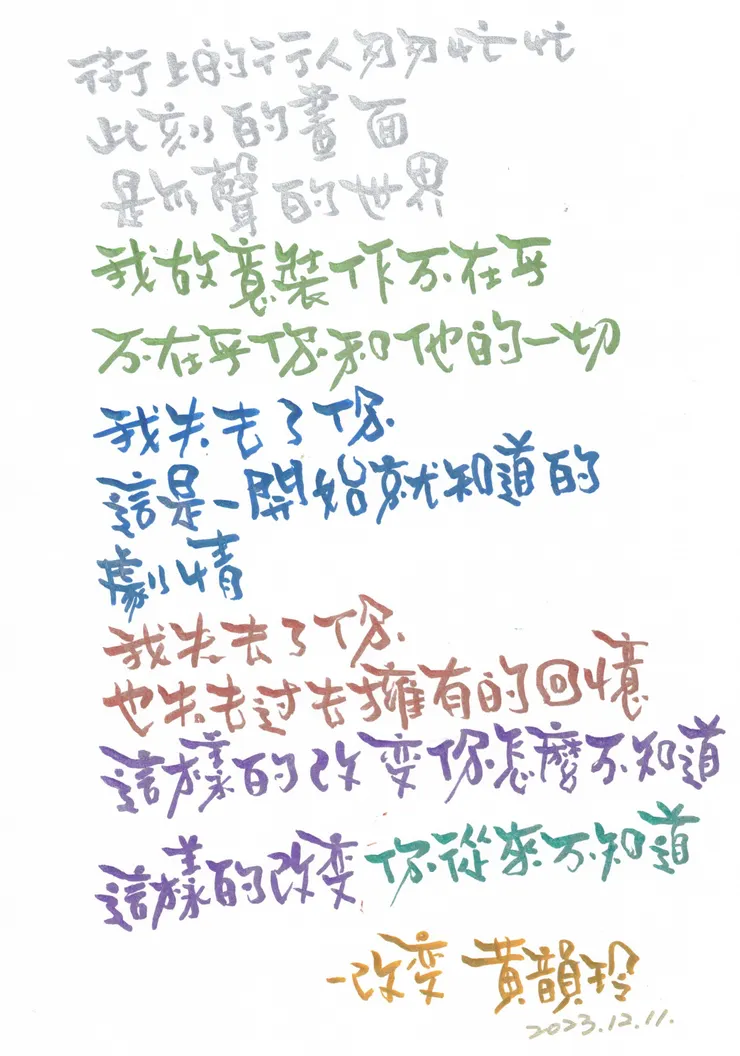 街上的行人匆匆忙忙
此刻的畫面
是無聲的世界
我故意裝作不在乎
不在乎你和他的一切
我失去了你
這是一開始就知道的
劇情
我失去了你
也失去过去擁有的回憶
這樣的改变你怎麼不知道
這樣的改变你從來不知道
-改变 黃韻玲
2023.12.11.